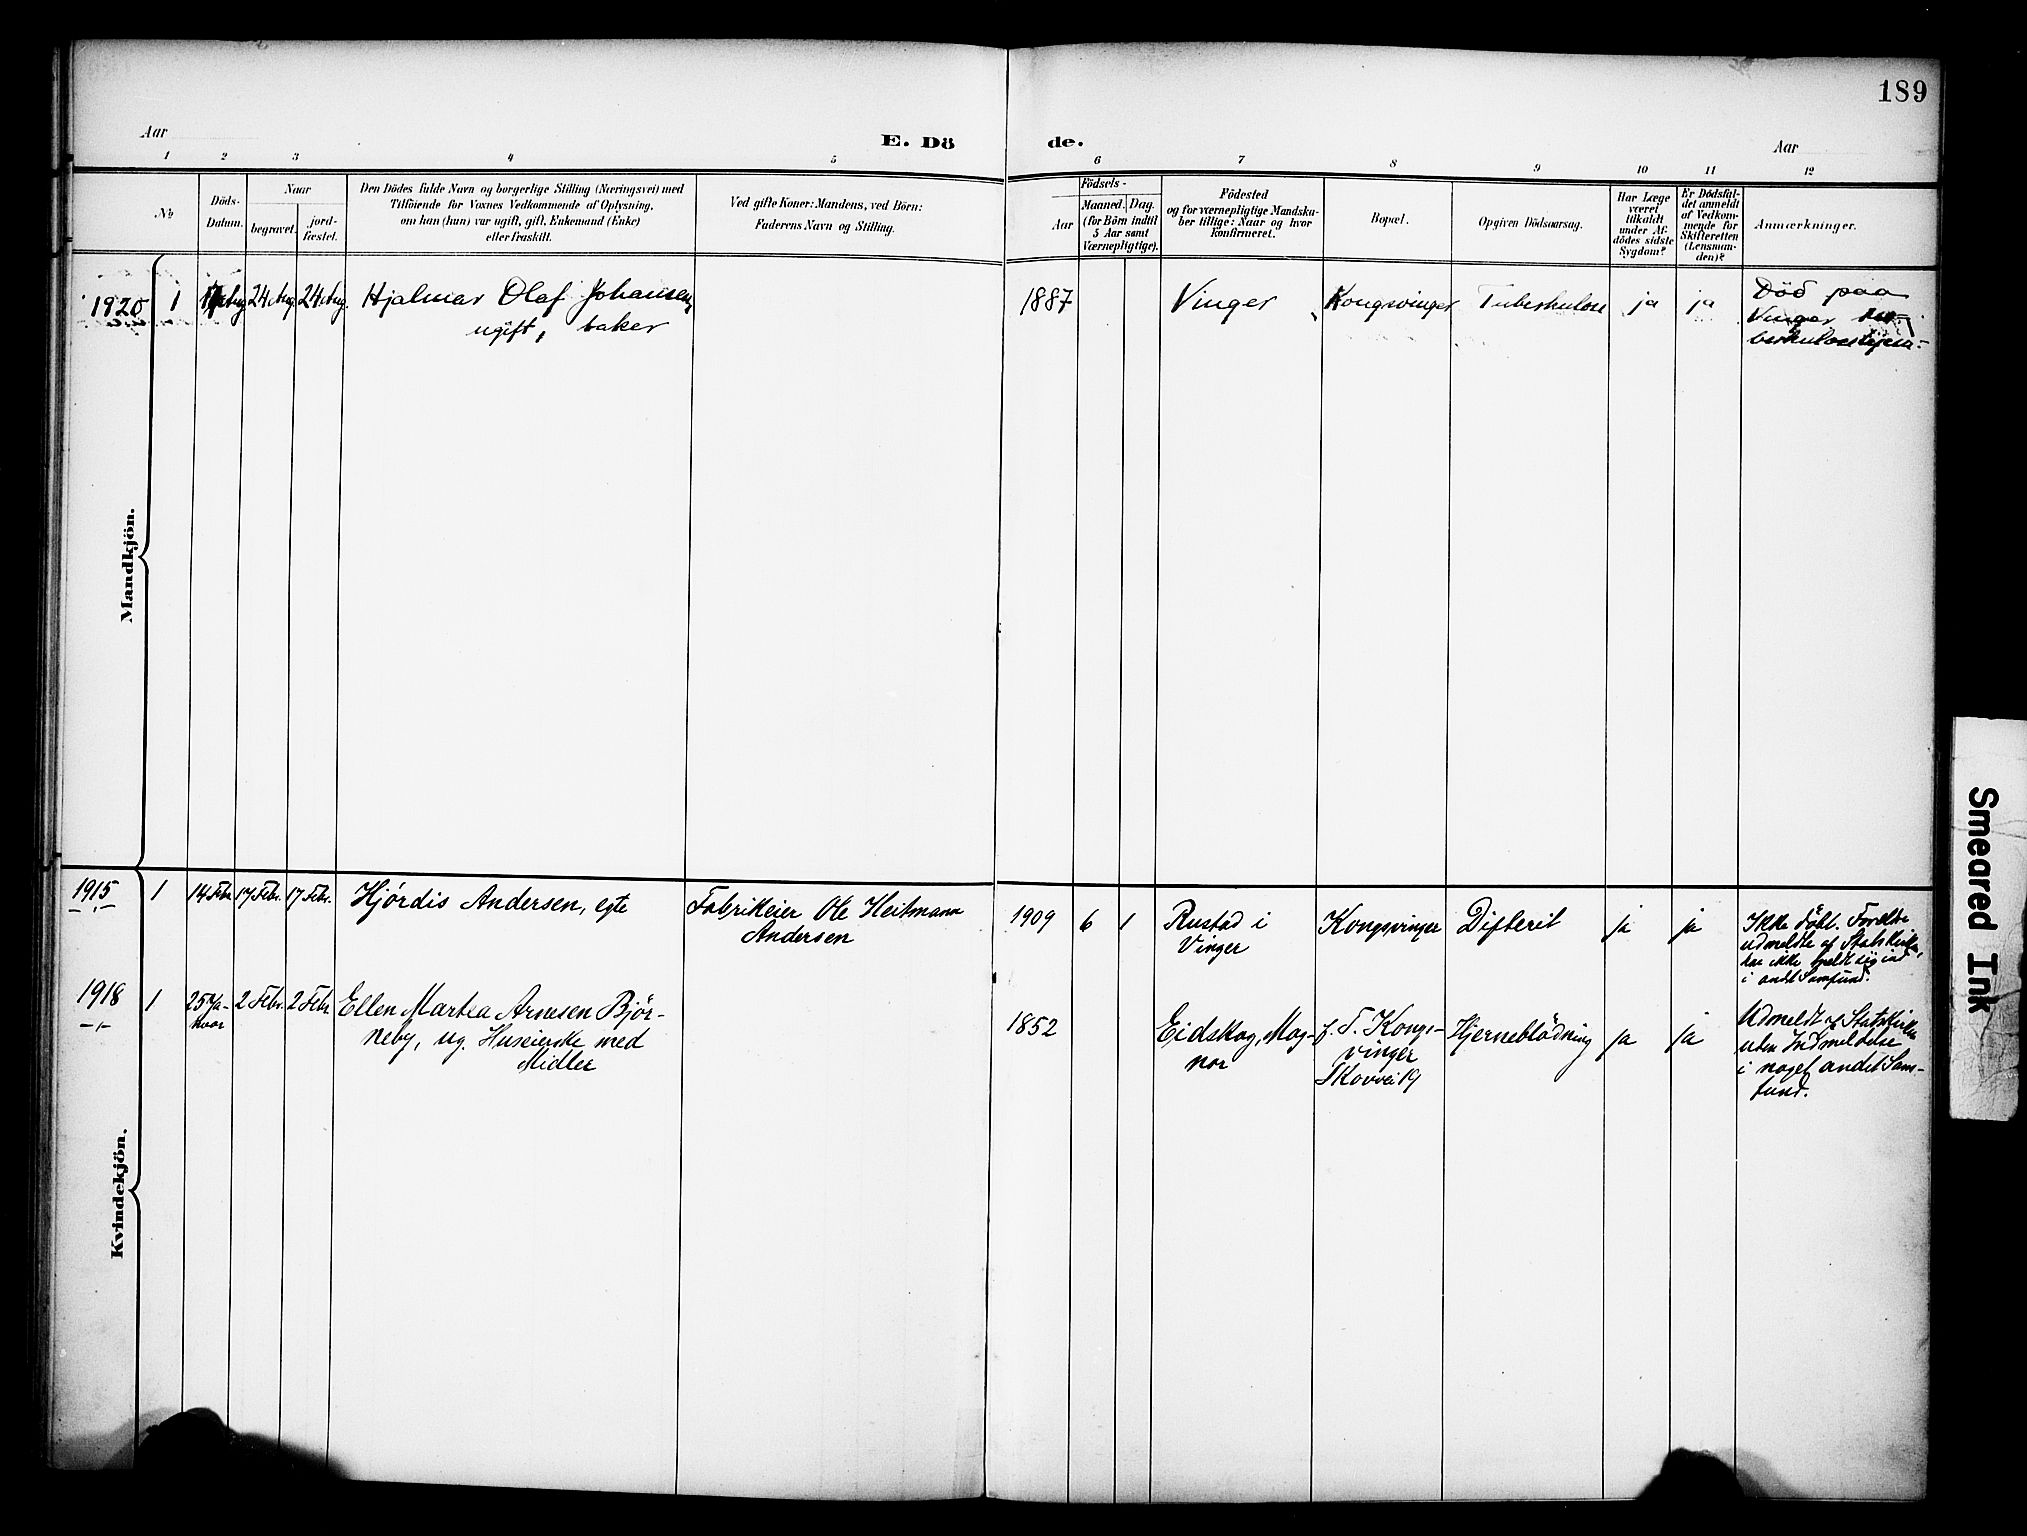 189
Aar
E. Dö
de.
Aar
1 2 3 4 5 6 7 8 9 10 11 12
No
Döds-
Datum.
Naar
begravet.
jord-
fæstet.
Den Dödes fulde Navn og borgerlige Stilling (Næringsvei) med
Tilföiende för Voxnes Vedkommende af Oplysning,
om han (hun) var ugift, gift, Enkemand (Enke)
eller fraskilt.
Ved gifte Koner: Mandens, ved Börn:
Faderens Navn og Stilling.
Födsels-
Aar
Maaned.
Dag.
(for Börn indtil
5 Aar samt
Værnepligtige).
Födested
og for værnepligtige Mandska-
ber tillige: Naar og hvor
konfirmeret.
Bopæl.
Opgiven Dödsaarsag.
Har Læge
været
tilkaldt
under Af-
dödes sidste
Sygdom?
Er Dödsfal-
det anmeldt
af Vedkom-
mende for
Skifteretten
(Lensman-
den)?
Anmærkninger.
Mandkjön.
1920 1 24 Aug 24 Aug. Hjalmar Olaf Johansen,
ugift, baker
1887 Vinger Kongsvinger Tuberkulose ja ja
Död paa
Vinger tu-
berkulosehjem.
Kvindekjön.
1915 1 14 Febr 17 Febr. 17 Febr. Hjördis Andersen, egte
Fabrikeier Ole Heitmann
Andersen
1909 6 1 Rustad i
Vinger
Kongsvinger Difterit ja ja
Ikke döbt. Foreldre
udmeldte af Statskirken,
har ikke meldt sig ind
i andet Samfund.
1918 1 25 Ja-
nuar
2 Febr. 2 Febr Ellen Martea Arnesen Bjør-
neby, ug. Huseierske med
Midler
1852 Eidskog, Mag-
nor
f. T. Kongs-
vinger
Skovvei 19
Hjerneblödning ja ja
Udmeldt af Statskirken
uden Indmeldelse
i noget andet Sam-
fund.
Smeared Ink